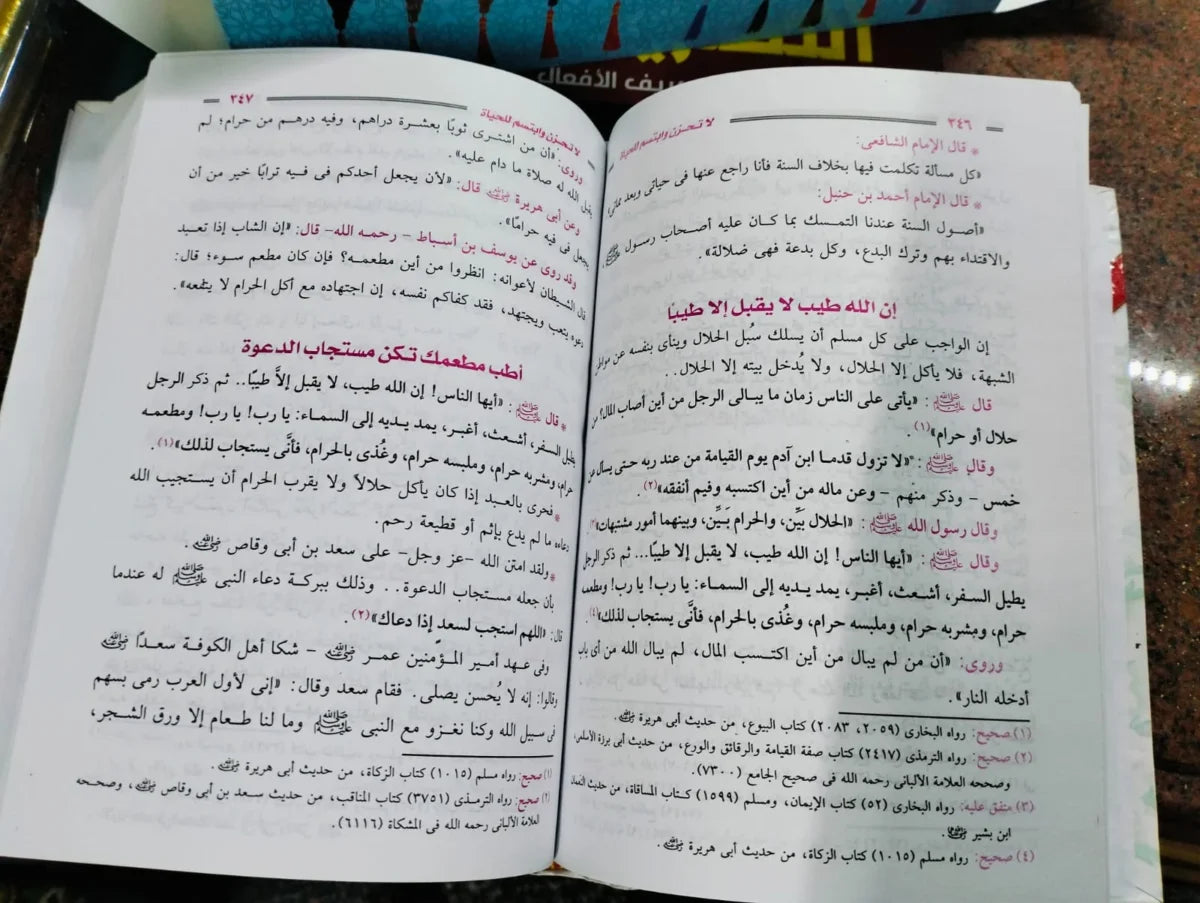 يف الأفعال
٣٤٦
لا تحزن وابتسم للحياة
* قال الإمام الشافعى:
«كل مسألة تكلمت فيها بخلاف السنة فأنا راجع عنها فى حياتى وبعد مماتى»
* قال الإمام أحمد بن حنبل:
«أصول السنة عندنا التمسك بما كان عليه أصحاب رسول ﷺ،
والاقتداء بهم وترك البدع، وكل بدعة فهى ضلالة».
إن الله طيب لا يقبل إلا طيبًا
إن الواجب على كل مسلم أن يسلك سُبل الحلال وينأى بنفسه عن مواطن
الشبهة، فلا يأكل إلا الحلال، ولا يُدخل بيته إلا الحلال...
قال ﷺ: «يأتى على الناس زمان ما يبالى الرجل من أين أصاب المال؟ من
حلال أو حرام»(١).
وقال ﷺ: «لا تزول قدما ابن آدم يوم القيامة من عند ربه حتى يسأل عن
خمس - وذكر منهم - وعن ماله من أين اكتسبه وفيم أنفقه»(٢).
وقال رسول الله ﷺ: «الحلال بَيِّن، والحرام بَيِّن، وبينهما أمور مشتبهات»(٣)
وقال ﷺ: «أيها الناس! إن الله طيب، لا يقبل إلا طيبًا... ثم ذكر الرجل
يطيل السفر، أشعث، أغبر، يمد يديه إلى السماء: يا رب! يا رب! ومطعمه
حرام، ومشربه حرام، وملبسه حرام، وغُذى بالحرام، فأنَّى يستجاب لذلك»(٤).
وروى: «أن من لم يبال من أين اكتسب المال، لم يبال الله من أى باب
أدخله النار».
(١) صحيح: رواه البخارى (٢٠٥٩، ٢٠٨٣) كتاب البيوع، من حديث أبى هريرة رضي الله عنه.
(٢) صحيح: رواه الترمذى (٢٤١٧) كتاب صفة القيامة والرقائق والورع، من حديث أبى برزة الأسلمى،
وصححه العلامة الألبانى رحمه الله فى صحيح الجامع (٧٣٠٠).
(٣) متفق عليه: رواه البخارى (٥٢) كتاب الإيمان، ومسلم (١٥٩٩) كتاب المساقاة، من حديث النعمان
ابن بشير رضي الله عنه.
(٤) صحيح: رواه مسلم (١٠١٥) كتاب الزكاة، من حديث أبى هريرة رضي الله عنه.
لا تحزن وابتسم للحياة
٣٤٧
وروى: «أن من اشترى ثوبًا بعشرة دراهم، وفيه درهم من حرام؛ لم
يقبل الله له صلاة ما دام عليه».
وعن أبى هريرة رضي الله عنه قال: «لأن يجعل أحدكم فى فيه ترابًا خير من أن
يجعل فى فيه حرامًا».
وقد روى عن يوسف بن أسباط - رحمه الله - قال: «إن الشاب إذا تعبد
قال الشيطان لأعوانه: انظروا من أين مطعمه؟ فإن كان مطعم سوء؛ قال:
دعوه يتعب ويجتهد، فقد كفاكم نفسه، إن اجتهاده مع أكل الحرام لا ينفعه».
أطب مطعمك تكن مستجاب الدعوة
* قال ﷺ: «أيها الناس! إن الله طيب، لا يقبل إلاَّ طيبًا.. ثم ذكر الرجل
يطيل السفر، أشعث، أغبر، يمد يديه إلى السماء: يا رب! يا رب! ومطعمه
حرام، ومشربه حرام، وملبسه حرام، وغُذى بالحرام، فأنَّى يستجاب لذلك»(١).
* فحرى بالعبد إذا كان يأكل حلالاً ولا يقرب الحرام أن يستجيب الله
دعاءه ما لم يدع بإثم أو قطيعة رحم.
* ولقد امتن الله -عز وجل- على سعد بن أبى وقاص رضي الله عنه.
بأن جعله مستجاب الدعوة.. وذلك ببركة دعاء النبى ﷺ له عندما
قال: «اللهم استجب لسعد إذا دعاك»(٢).
وفى عهد أمير المؤمنين عمر رضي الله عنه - شكا أهل الكوفة سعدًا رضي الله عنه
وقالوا: إنه لا يُحسن يصلى. فقام سعد وقال: «إنى لأول العرب رمى بسهم
فى سبيل الله وكنا نغزو مع النبى ﷺ وما لنا طعام إلا ورق الشجر،
(١) صحيح: رواه مسلم (١٠١٥) كتاب الزكاة، من حديث أبى هريرة رضي الله عنه.
(٢) صحيح: رواه الترمذى (٣٧٥١) كتاب المناقب، من حديث سعد بن أبى وقاص رضي الله عنه، وصححه
العلامة الألبانى رحمه الله فى المشكاة (٦١١٦).